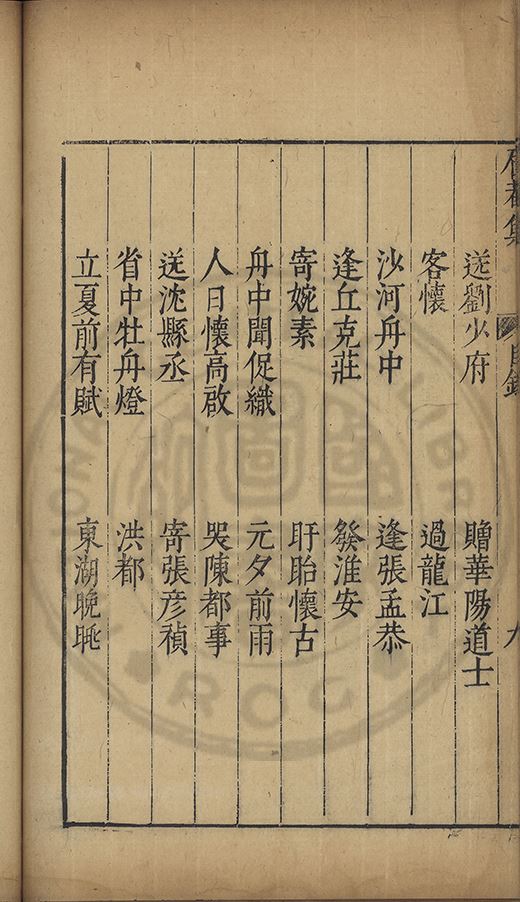 集
送劉少府 贈華陽道士
客懷 過龍江
沙河舟中 逢張孟恭
逢丘克莊 發淮安
寄婉素 盱眙懷古
舟中聞促織 元夕前雨
人日懷高啟 哭陳都事
送沈縣丞 寄張彥禎
省中牡丹燈 洪都
立夏前有賦 東湖晚眺